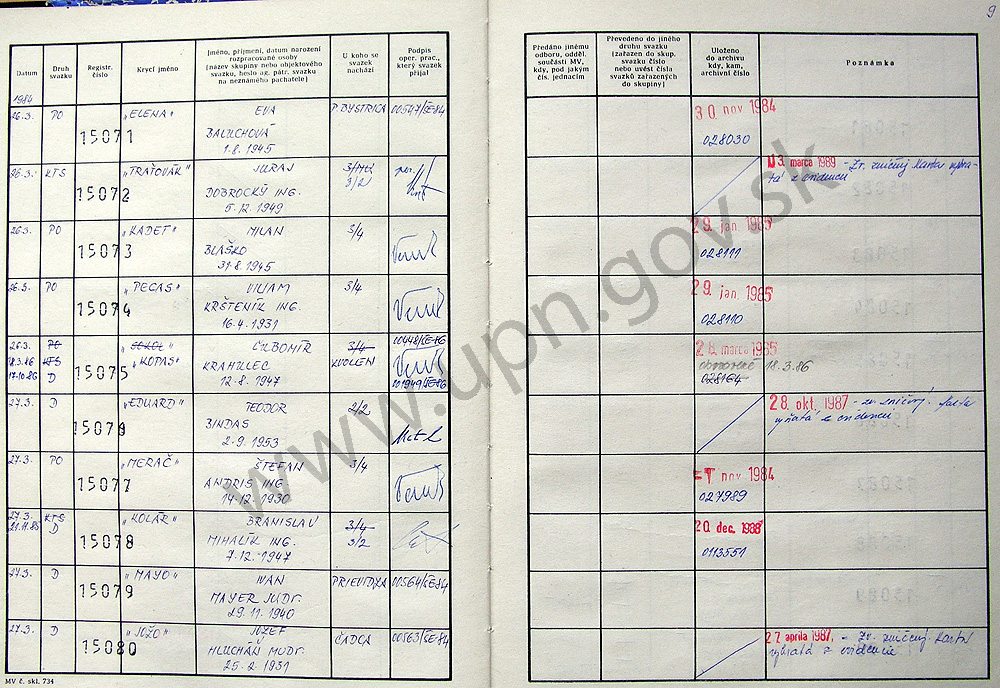 9
Datum
Druh svazku
Registr. číslo
Krycí jméno
Jméno, příjmení, datum narození
rozpracované osoby
[název skupiny nebo objektového
svazku, heslo ag. pátr. svazku
na neznámého pachatele]
U koho se
svazek
nachází
Podpis
oper. prac.,
který svazek
přijal
Předáno jinému
odboru, odděl.
součásti MV,
kdy, pod jakým
čís. jednacím
Převedeno do jiného
druhu svazku
[zařazen do skup.
svazku číslo
nebo uvést číslo
svazků zařazených
do skupiny]
Uloženo
do archivu
kdy, kam,
archivní číslo
Poznámka
1984
26.3. PO 15071 "ELENA" EVA P. BYSTRICA 00547/ČE-84 30 nov 1984
BALUCHOVÁ 028030
1.8.1945
26.3. KTS 15072 "TRAŤOVÁK" JURAJ 3/2 3. marca 1989 - Zv. zničený karta vybra-
DOBROCKÝ ING. tá z evidencie
5.12.1949
26.3. PO 15073 "KADET" MILAN 3/4 29. jan. 1985
BLAŠKO 028111
31.8.1945
26.3. PO 15074 "PEGAS" VILIAM 3/4 29. jan. 1985
KRŠTENÍK ING. 028110
16.4.1931
26.3. PO 15075 "SOKOL" ĽUBOMÍR 3/4 00448/ČE-86 28. marca 1985
18.3.86 KTS "KOPAS" KRAHULEC ZVOLEN obnovené 18.3.86
17.10.86 D 12.8.1947 001949/ČE-86 028164
27.3. D 15079 "EDUARD" TEODOR 2/2 28. okt. 1987 - zv. zničený. karta
BINDAS vyňatá z evidencie
2.9.1953
27.3. PO 15077 "MERAČ" ŠTEFAN 3/4 nov 1984
ANDRIS ING. 027989
14.12.1930
27.3. KTS 15078 "KOLÁR" BRANISLAV 3/4 20. dec. 1988
21.11.85 D MIHALÍK ING. 3/2 0113551
7.12.1947
27.3. D 15079 "MAYO" IVAN PRIEVIDZA 00564/ČE-84
MAYER JUDr.
29.11.1940
27.3. D 15080 "JOŽO" JOZEF ČADCA 00563/ČE-84 27. apríla 1987. - Zv. zničený. karta
HLUCHÁŇ MUDr. vybratá z evidencie
25.2.1931
MV č. skl. 734
www.upn.gov.sk